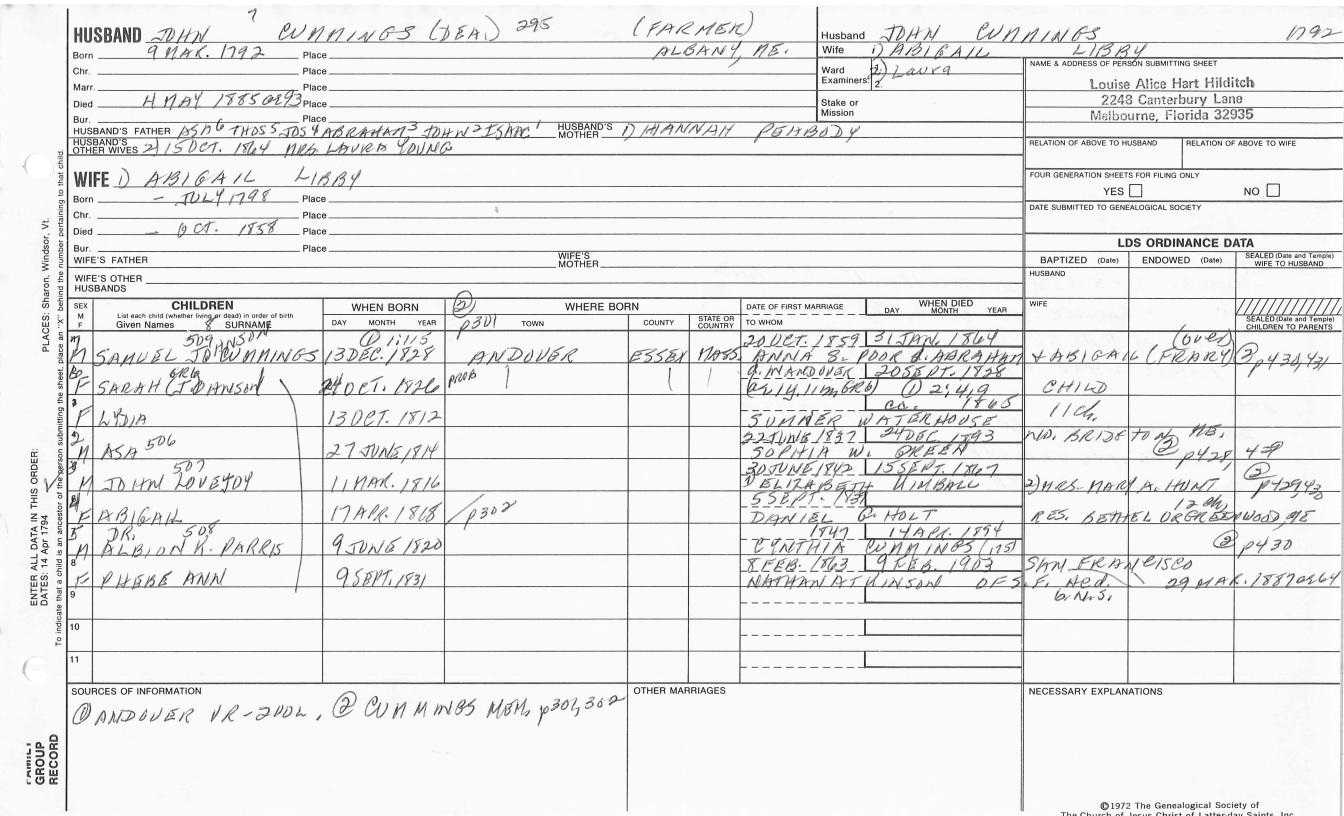 7
HUSBAND JOHN CUMMINGS (DEA.) 295 (FARMER)
Born 9 MAR. 1792 Place ALBANY, ME.
Chr. Place
Marr. Place
Died 4 MAY 1885 ae 93 Place
Bur. Place
HUSBAND'S FATHER ASA6 THOS5 JOS4 ABRAHAM3 JOHN2 ISAAC1 HUSBAND'S MOTHER 1) HANNAH PEABODY
HUSBAND'S OTHER WIVES 2) 15 OCT. 1864 MRS LAURA YOUNG
Husband JOHN CUMMINGS 1792
Wife 1) ABIGAIL LIBBY
Ward Examiners: 1. 2) Laura
2.
Stake or Mission
NAME & ADDRESS OF PERSON SUBMITTING SHEET
Louise Alice Hart Hilditch
2243 Canterbury Lane
Melbourne, Florida 32935
RELATION OF ABOVE TO HUSBAND RELATION OF ABOVE TO WIFE
FOUR GENERATION SHEETS FOR FILING ONLY
YES NO
DATE SUBMITTED TO GENEALOGICAL SOCIETY
WIFE 1) ABIGAIL LIBBY
Born - JULY 1798 Place
Chr. Place
Died - OCT. 1858 Place
Bur. Place
WIFE'S FATHER WIFE'S MOTHER
WIFE'S OTHER HUSBANDS
LDS ORDINANCE DATA
BAPTIZED (Date) ENDOWED (Date) SEALED (Date and Temple) WIFE TO HUSBAND
HUSBAND
WIFE
SEALED (Date and Temple) CHILDREN TO PARENTS
SEX M F
CHILDREN
List each child (whether living or dead) in order of birth
Given Names 8 SURNAME
WHEN BORN
DAY MONTH YEAR
② p301
WHERE BORN
TOWN COUNTY STATE OR COUNTRY
DATE OF FIRST MARRIAGE
TO WHOM
WHEN DIED
DAY MONTH YEAR
509 JOHNSON ① 1:115 20 OCT. 1859 31 JAN. 1864 (over)
M SAMUEL CUMMINGS 13 DEC. 1828 ANDOVER ESSEX MASS. ANNA S. POOR d. ABRAHAM + ABIGAIL (FRARY) ② p430,431
GRG d. N ANDOVER 20 SEPT. 1828
F SARAH (JOHNSON) OCT. 1826 PROB (ae 1y, 11m, GRG) ① 2:419 CHILD
3 ca. 1865 11 ch.
F LYDIA 13 OCT. 1812 SUMNER WATERHOUSE
2 22 JUNE 1837 24 DEC. 1893 NO. BRIDGTON ME.
M ASA 506 27 JUNE 1814 SOPHIA W. GREEN ② p428, 429
3 507 30 JUNE 1842 15 SEPT. 1867 ②
M JOHN LOVEJOY 11 MAR. 1816 1) ELIZABETH KIMBALL 2) MRS. MARY A. HUNT p429,430
4 5 SEPT. 1837 12 ch.
F ABIGAIL 17 APR. 1818 p302 DANIEL G. HOLT RES. BETHEL OR GREENWOOD, ME
5 DR. 508 1847 14 APR. 1894
M ALBION K. PARRIS 9 JUNE 1820 CYNTHIA CUMMINGS ② p430
8 8 FEB. 1863 9 FEB. 1903 SAN FRANCISCO
F PHEBE ANN 9 SEPT. 1831 NATHAN ATKINSON OF S.F. He d. 29 MAR. 1887 ae 64
9 6. N.S.
10
11
SOURCES OF INFORMATION
① ANDOVER VR-2VOL, ② CUMMINGS MEM, p301,302
OTHER MARRIAGES
NECESSARY EXPLANATIONS
©1972 The Genealogical Society of
The Church of Jesus Christ of Latter-day Saints, Inc.
PLACES: Sharon, Windsor, Vt.
ENTER ALL DATA IN THIS ORDER:
DATES: 14 Apr 1794
To indicate that a child is an ancestor of the person submitting the sheet, place an "X" behind the number pertaining to that child.
FAMILY GROUP RECORD